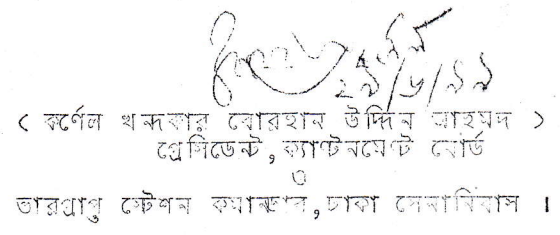 ২৯/৬/৯৯
( কর্ণেল খন্দকার বোরহান উদ্দিন আহমদ )
প্রেসিডেন্ট, ক্যান্টনমেন্ট বোর্ড
ও
ভারপ্রাপ্ত স্টেশন কমান্ডার, ঢাকা সেনানিবাস ।